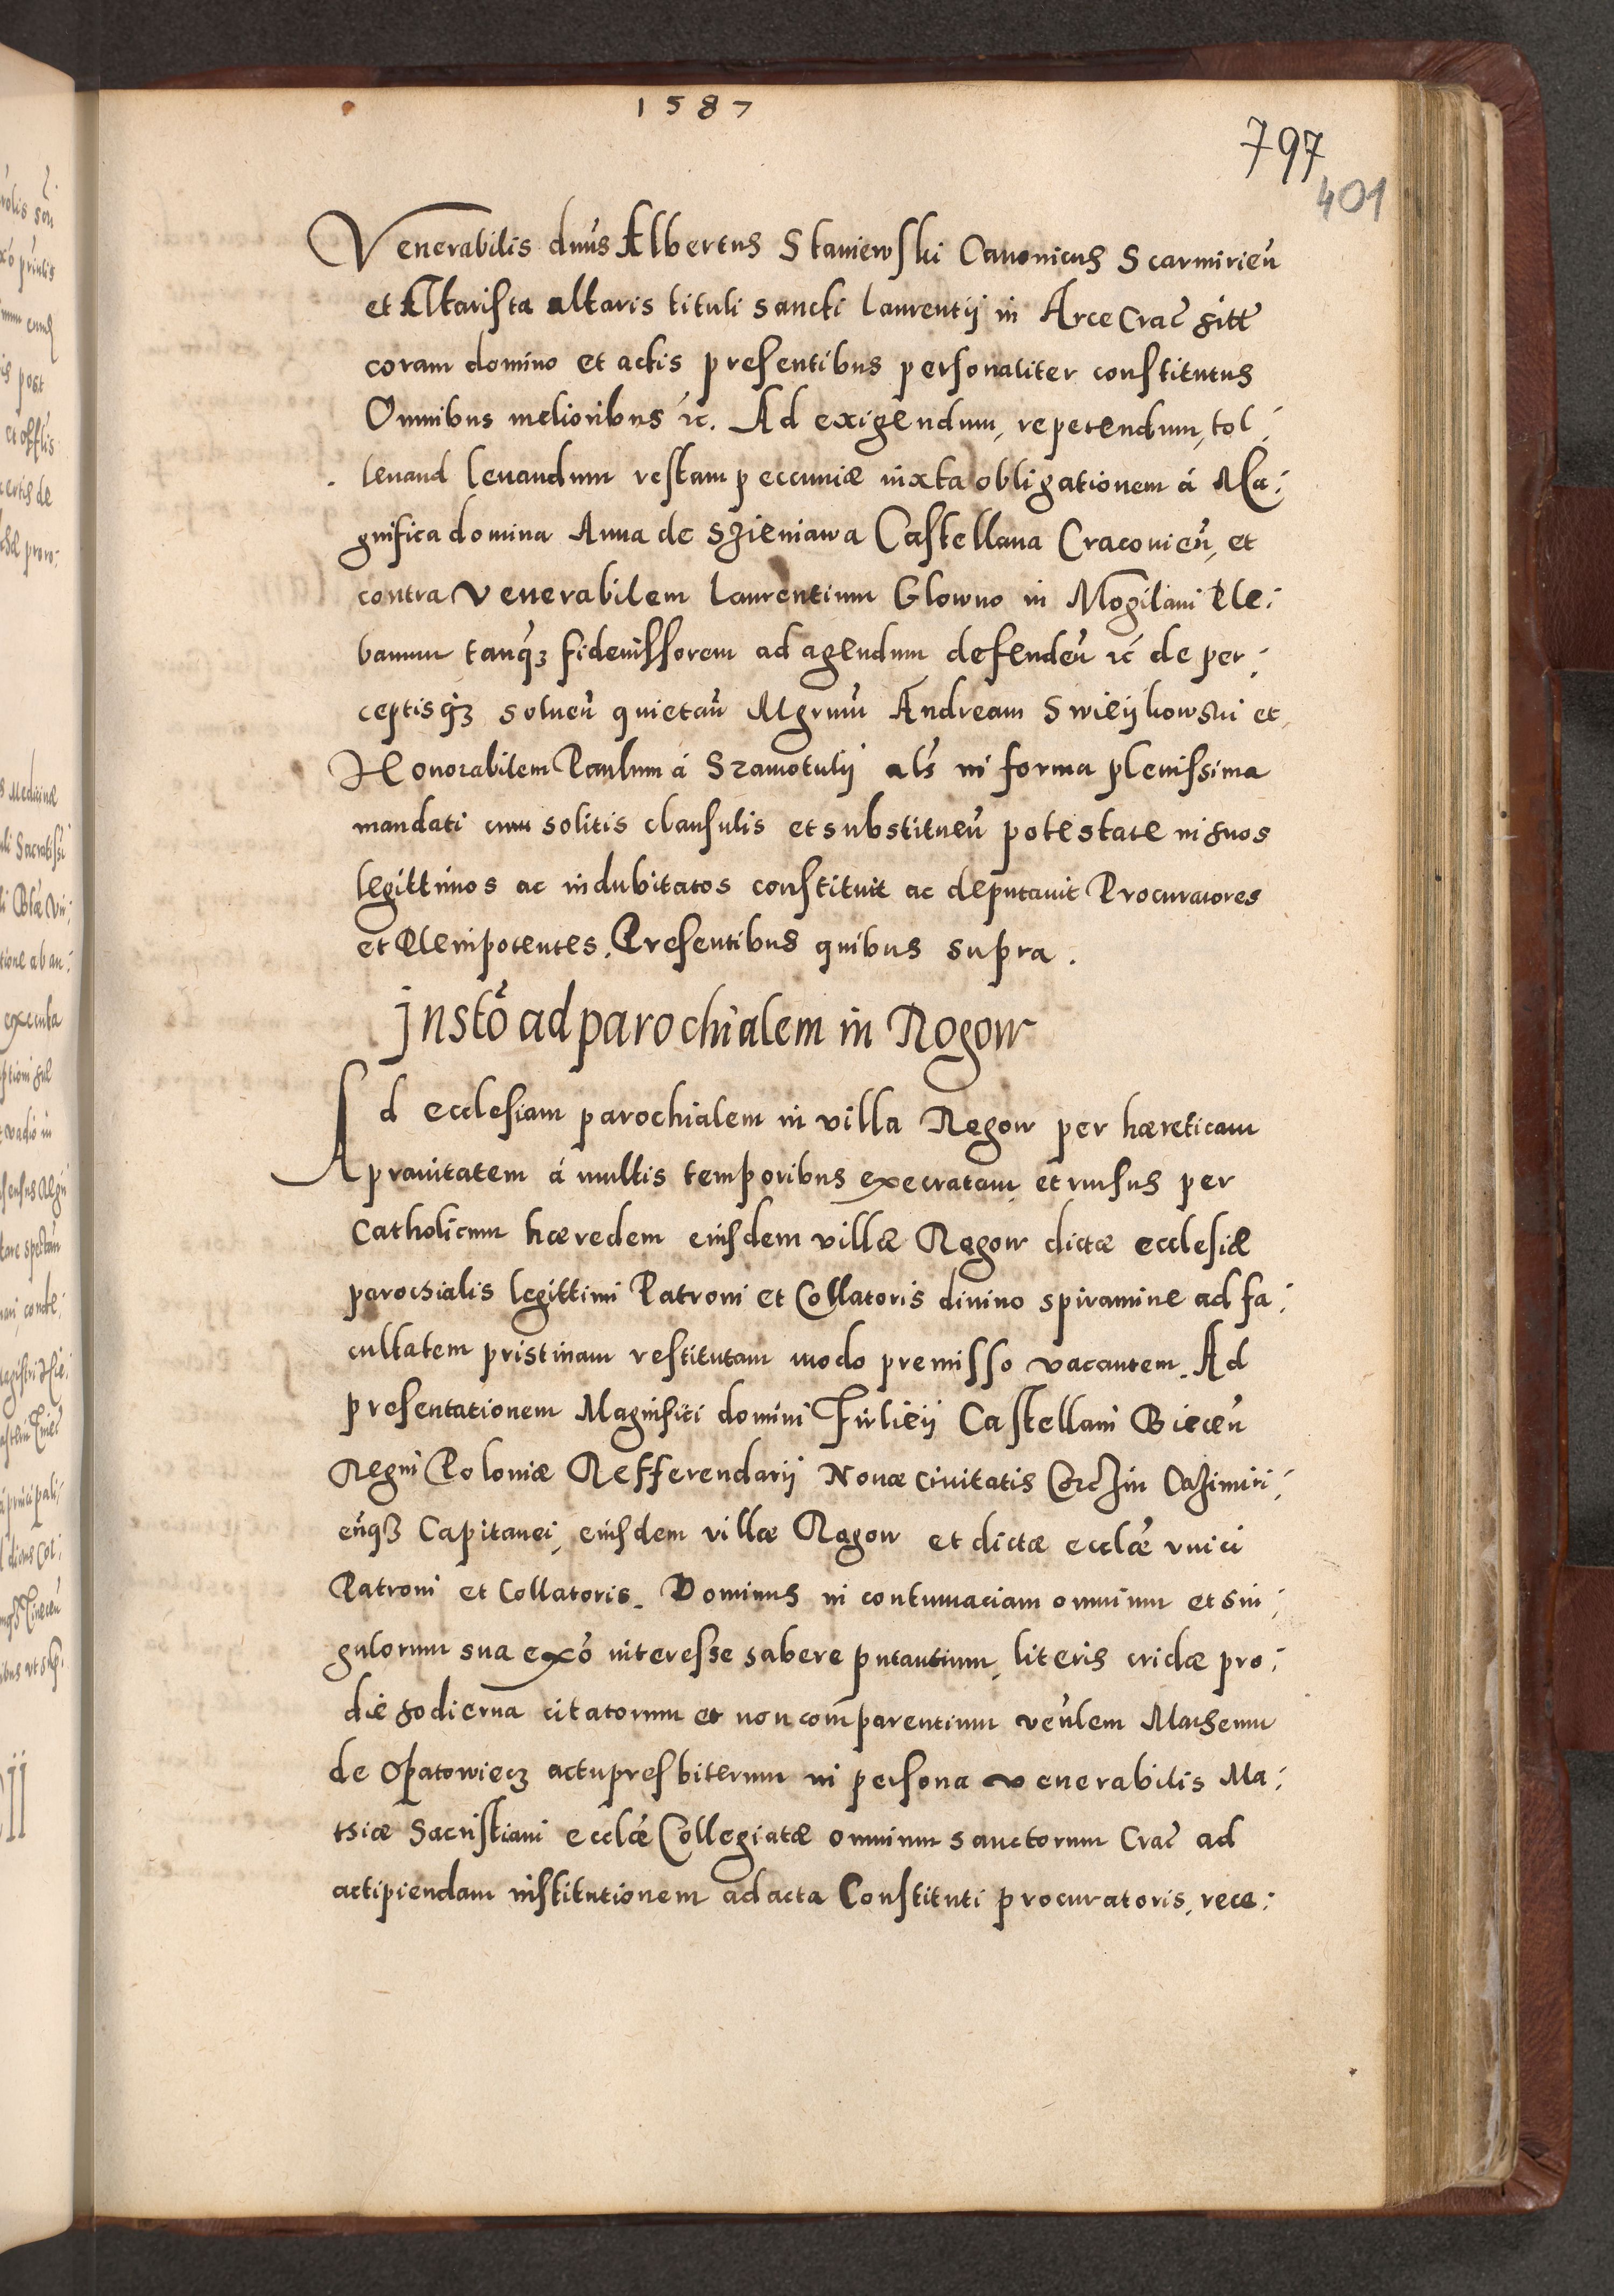 1587
797
401
Venerabilis dnus Albertus Staniewski Canonicus Scarmirien
et Altarista altaris tituli sancti Laurentij in Arce Crac sitt
coram domino et actis presentibus personaliter constitutus
Omnibus melioribus etc. Ad exigendum, repetendum, tol;
levand levandum restam peccuniæ iuxta obligationem á Ma;
gnifica domina Anna de Szieniawa Castellana Cracovien, et
contra Venerabilem Laurentium Glowno in Mogilani Ple;
banum tanq3 fideiussorem ad agendum defenden etc de per;
ceptisq3 solven quietan Mgrum Andream Swieijkowski et,
Honorabilem Paulum á Szamotulij als in forma plenissima
mandati cum solitis clausulis et substituen potestate in suos
legittimos ac indubitatos constituit ac deputavit Procuratores
et Plenipotentes. Presentibus quibus supra.
Insto ad parochialem in Rogow
Ad ecclesiam parochialem in villa Rogow per hæreticam
pravitatem á multis temporibus execratam et rursus per
Catholicum hæredem eiusdem villæ Rogow dictæ ecclesiæ
parochialis legittimi Patroni et Collatoris divino spiramine ad fa;
cultatem pristinam restitutam modo premisso vacantem. Ad
presentationem Magnifici domini Firlieij Castellani Biecen
Regni Poloniæ Refferendarij Novæ Civitatis Corczin Cazimiri;
enq3 Capitanei, eiusdem villæ Rogow et dictæ ecclæ unici
Patroni et Collatoris. Dominus in contumaciam omnium et sin;
gulorum sua exo interesse habere putantium, literis cridæ pro;
die hodierna citatorum et non comparentium venlem Matheum
de Opatowiecz actu presbiterum in persona venerabilis Ma;
thiæ Sacristiani ecclæ Collegiatæ omnium sanctorum Crac ad
accipiendam institutionem ad acta Constituti procuratoris, rece;